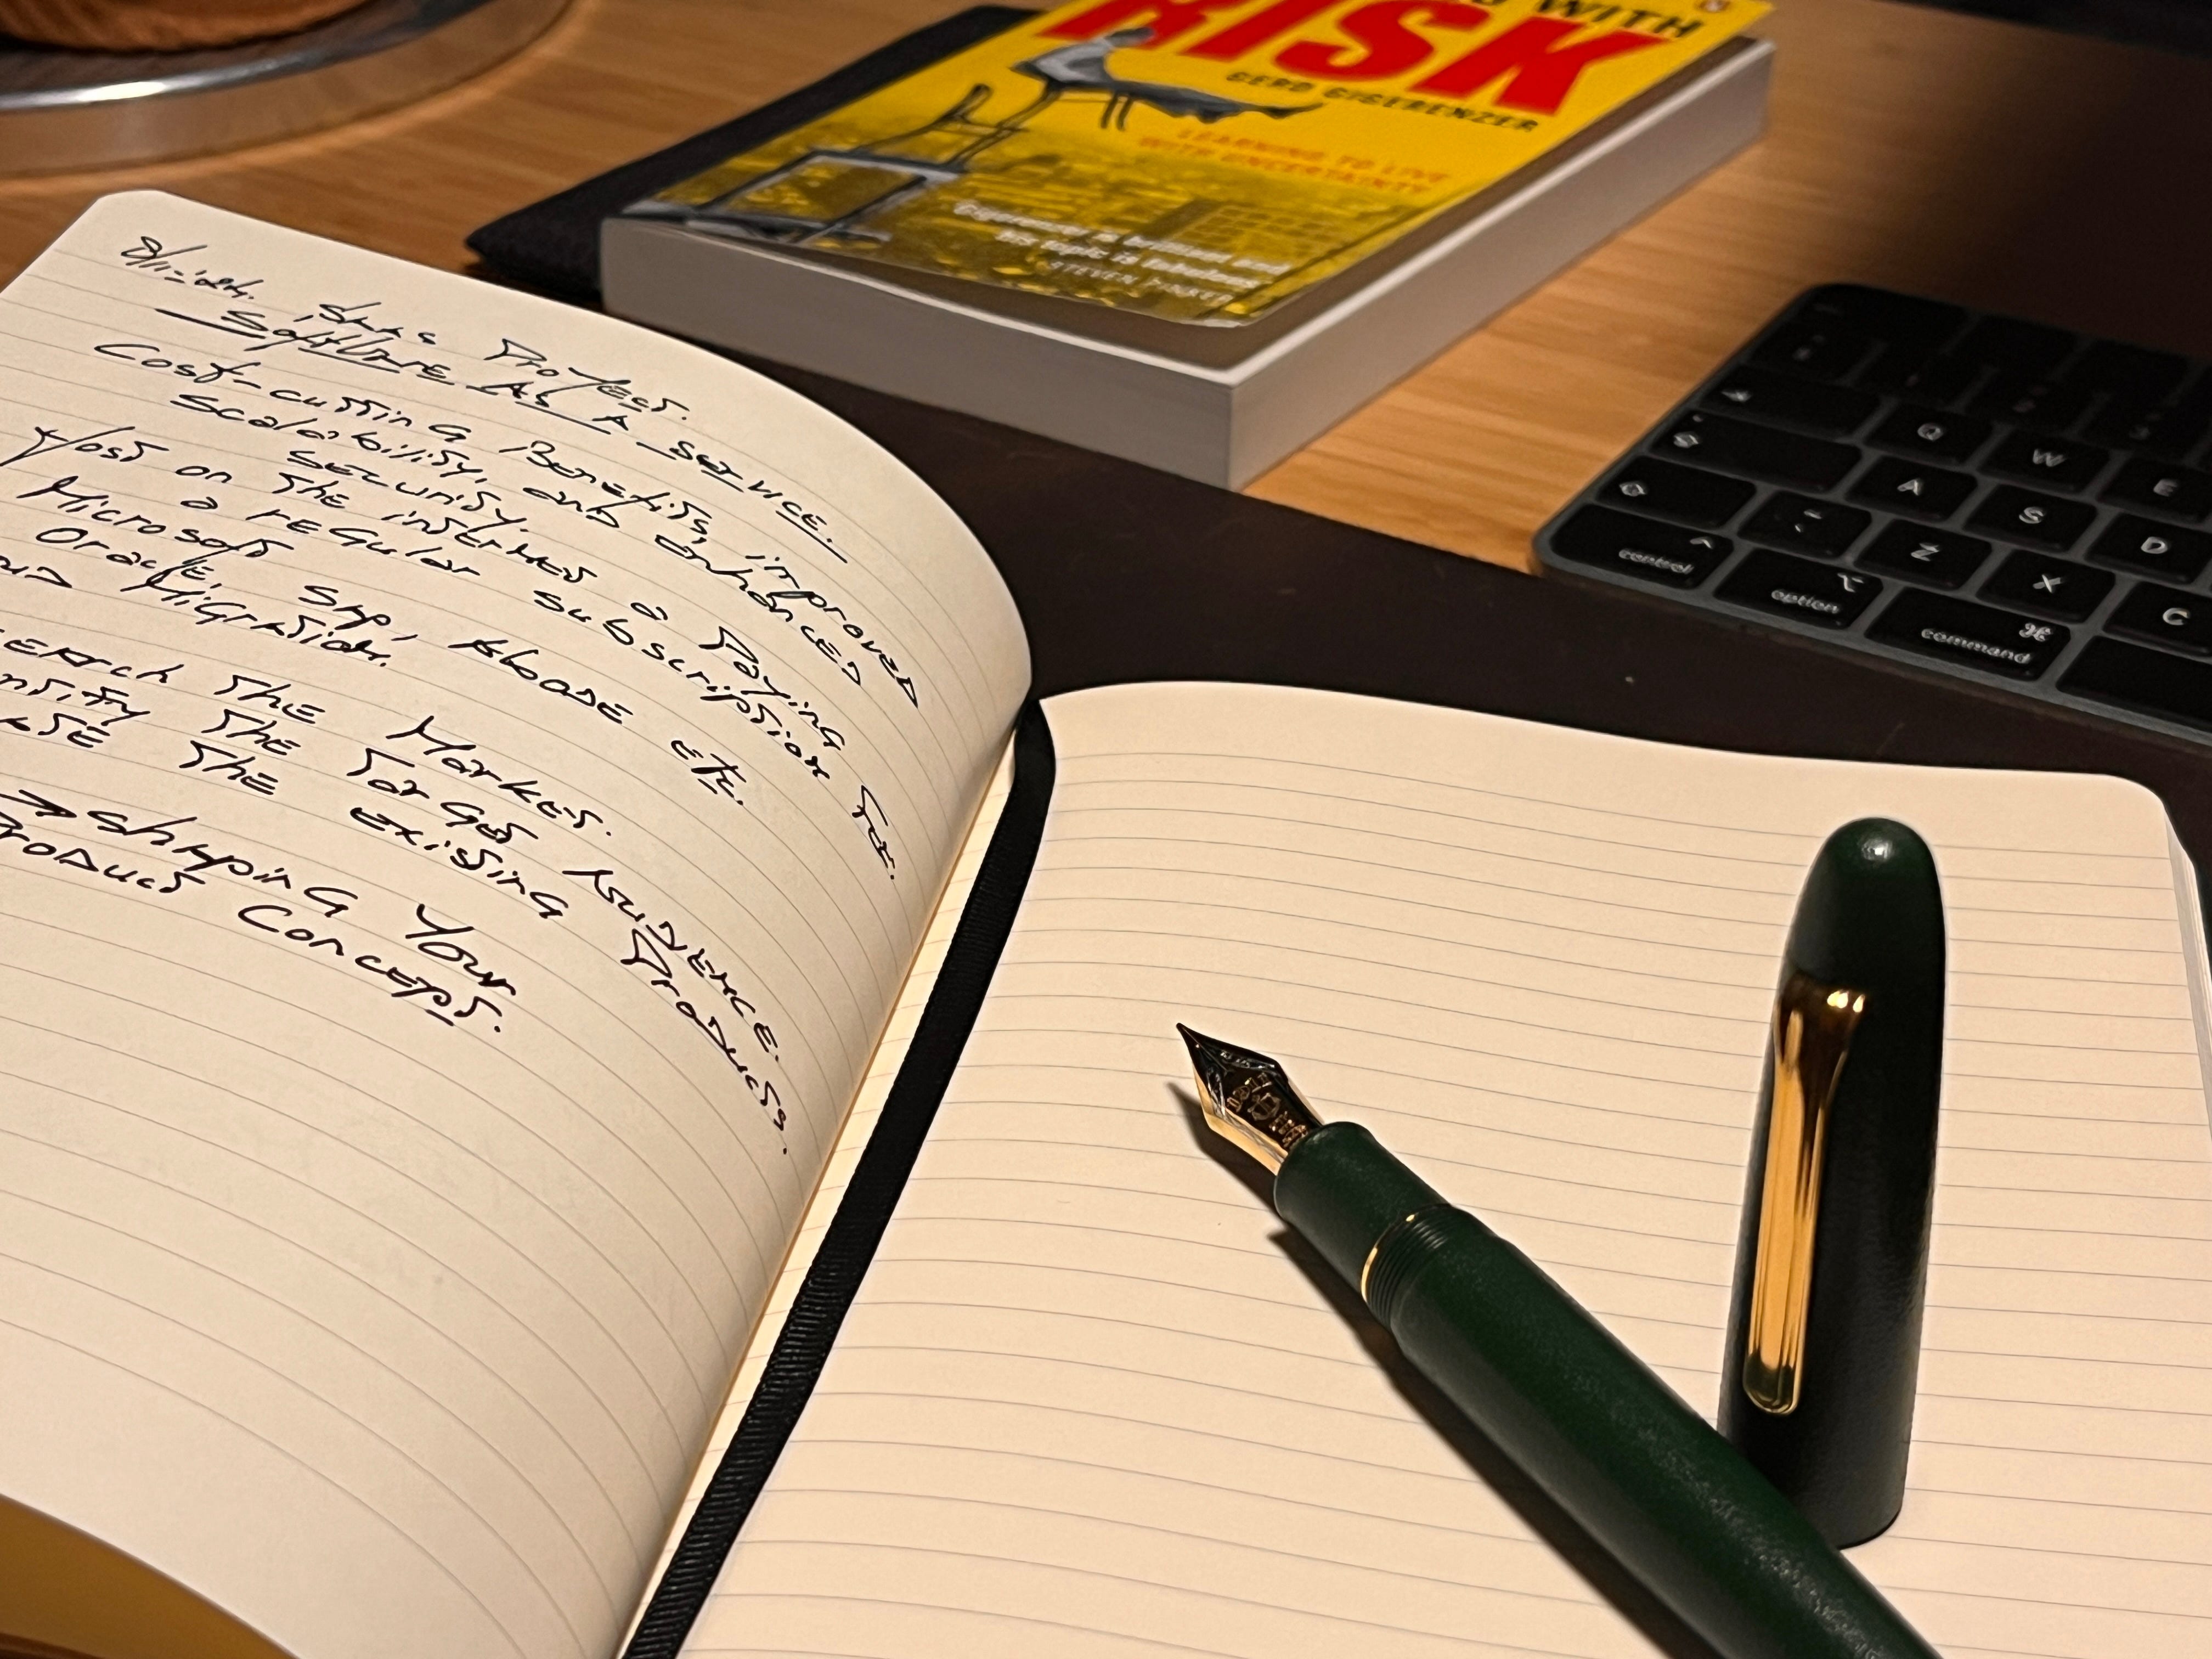 SaaS Project.
Software As A Service.
Cost-cutting Benefits, improved
scalability, and enhanced
security.
Host on the internet a Paying
a regular subscription Fee.
Microsoft SAP, Adobe etc.
Oracle,
Migration.
the Market.
the Target Audience.
the existing Products.
→ Shaping Your
Product Concept.
WITH
RISK
GERD GIGERENZER
LEARNING TO LIVE
WITH UNCERTAINTY
'Gigerenzer is brilliant and
his topic is fabulous'
STEVEN PINKER
Q W E
A S D
Z X C
control
option
command